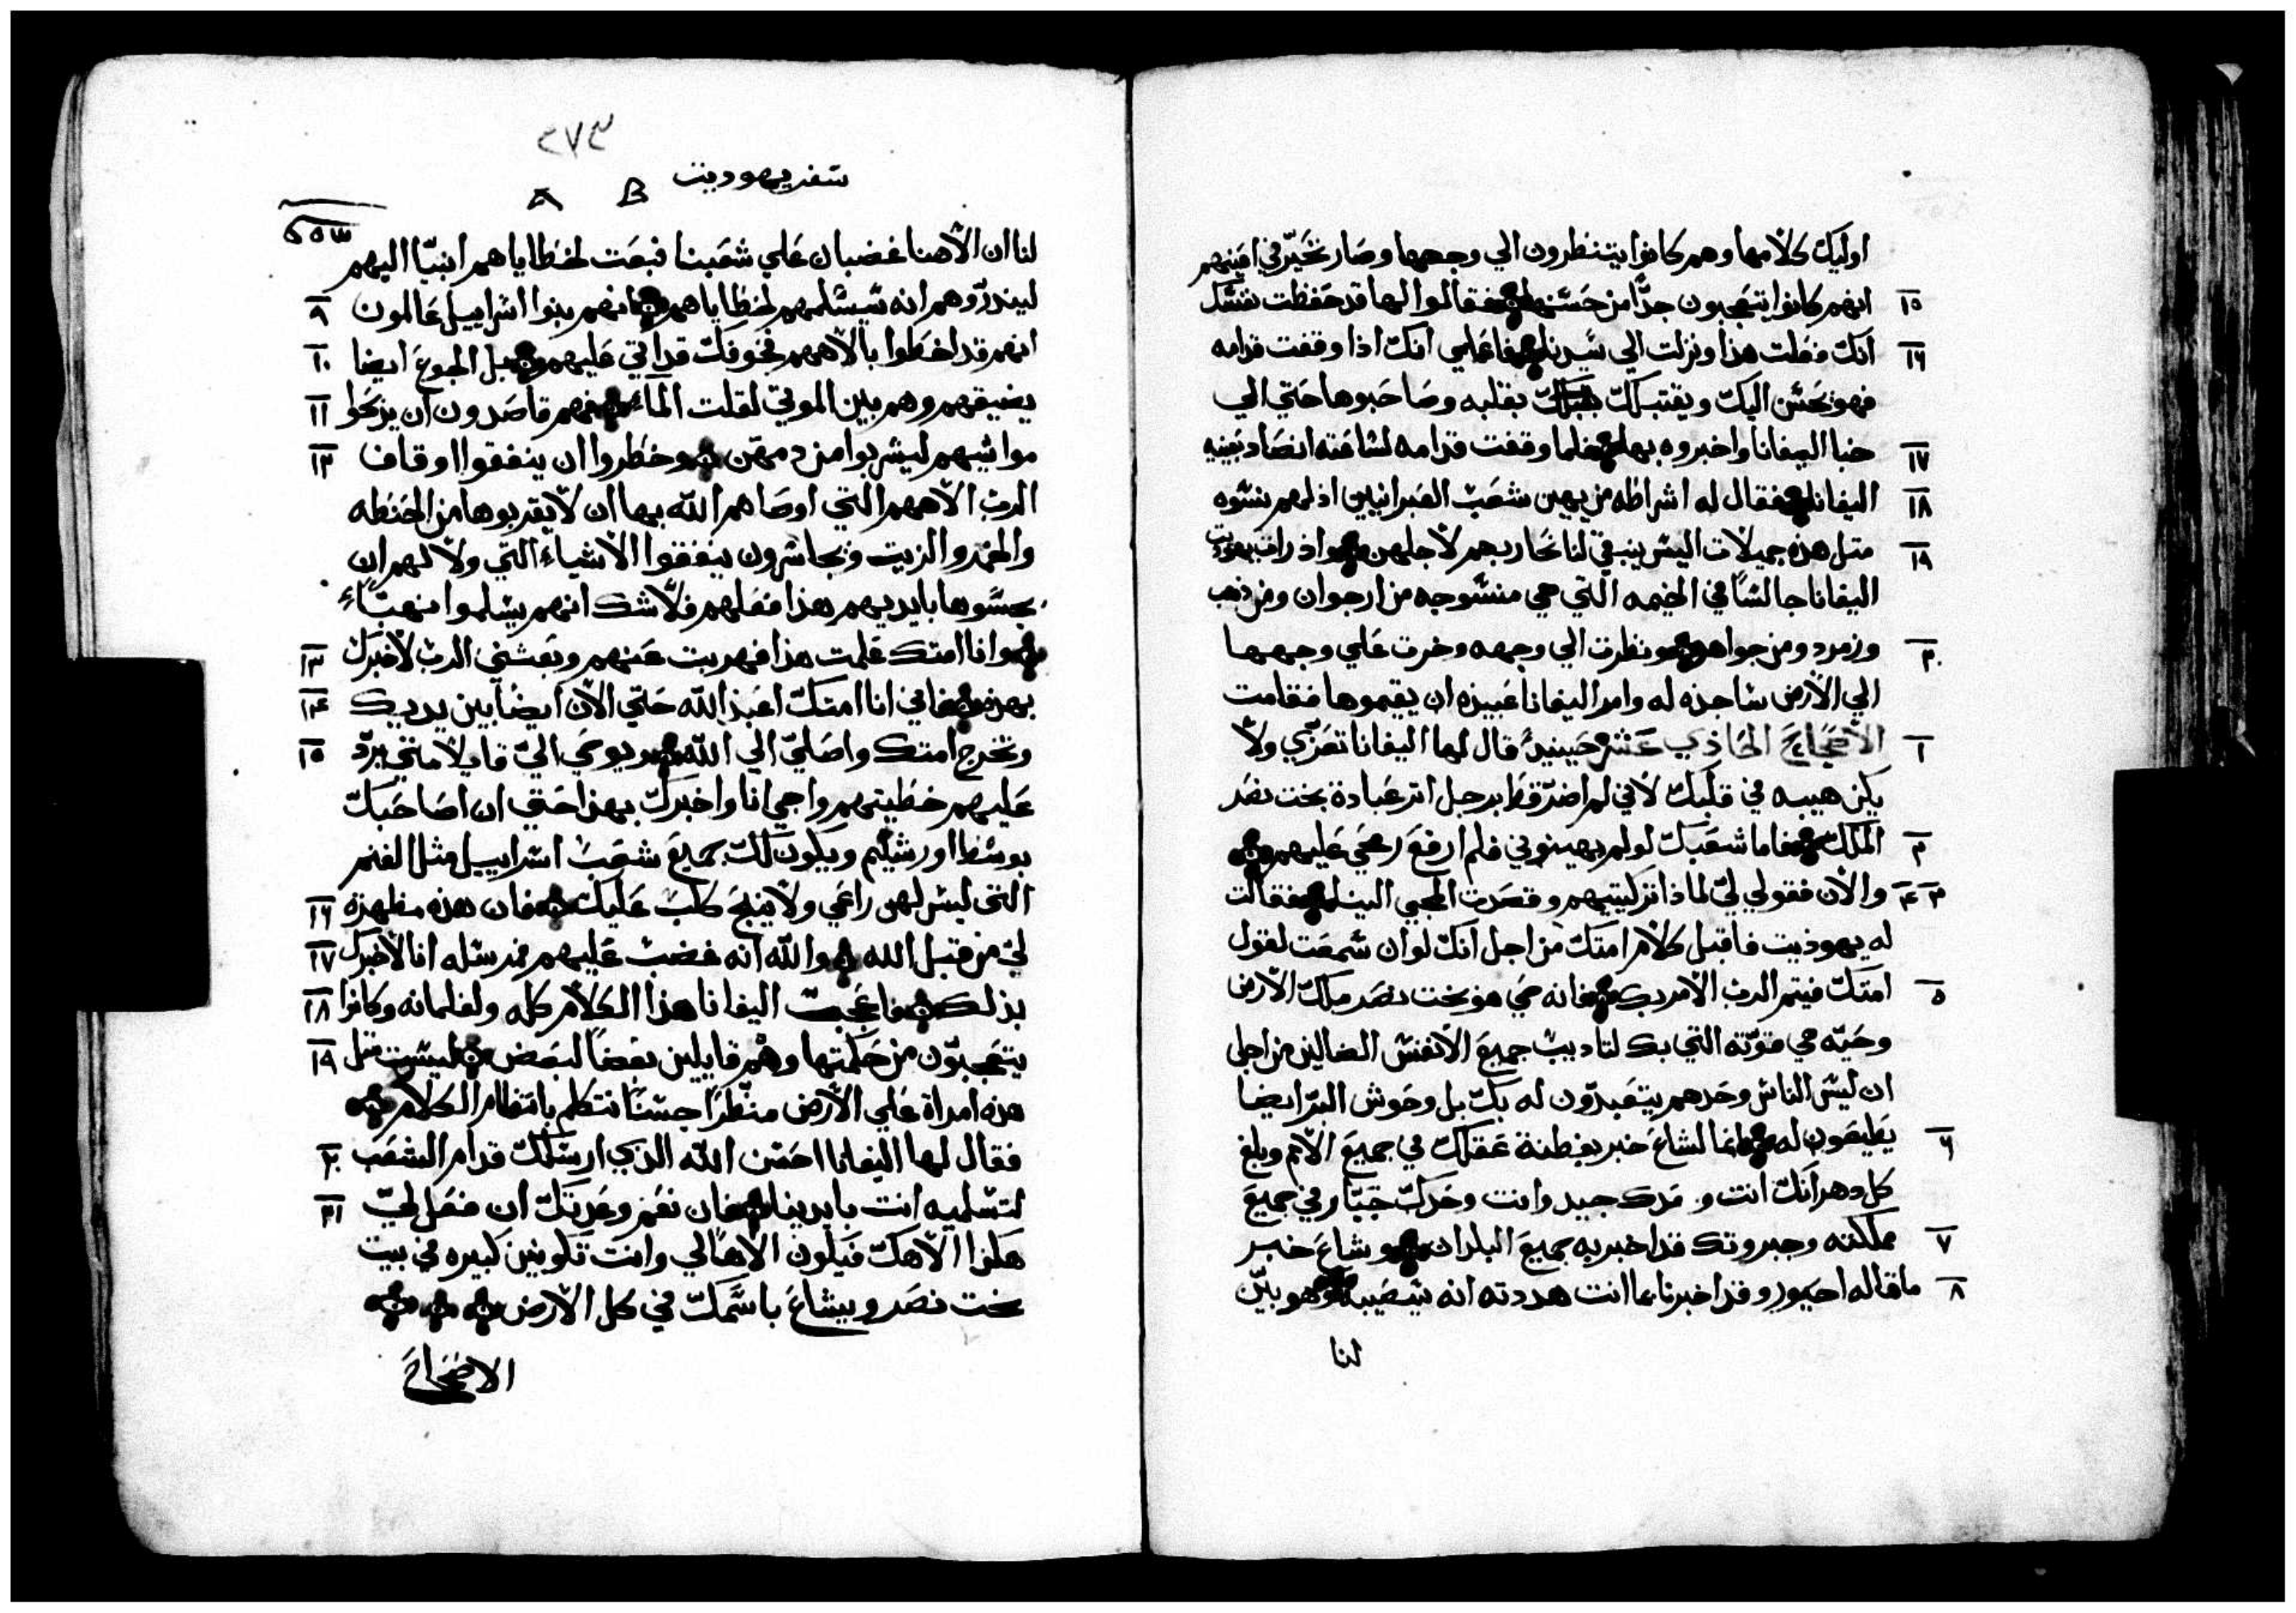 اوليك كلامها وهم كانوا يتنظرون الي وجهها وصار تحيّر في اعينهم
١٥ انهم كانوا يتعجبون جدًّا من حسنها فقالوا لها قد حفظت نفسك
١٦ انك فعلت هذا ونزلت الي سيدنا فاعلمي انك اذا وقفت قدامه
فهو يحسن اليك ويقتبلك بقلبه وصاحبوها حتي الي
١٧ خبا اليفانا واخبروه بها فلما وقفت قدامه لساعته انصاد بعينيه
١٨ اليفانا فقال له اشراطه من يهين شعب العبرانيين اذ لهم نسوه
١٩ متل هذه جميلات اليس ينبغي لنا نحاربهم لاجلهن واذ رات يهوديت
اليفانا جالسًا في الخيمه التي هي منسوجه من ارجوان ومن ذهب
٢٠ وزمرد ومن جواهر ونظرت الي وجهه وخرت علي وجهها
الي الارض ساجده له وامر اليفانا عبيده ان يقيموها فقامت
١ الاصحاح الحادي عشر حينيذ قال لها اليفانا تعزّي ولا
يكن هيبه في قلبك لاني لم اضرّ قط برجل اتر عبادة بخت نصر
٢ الملك فاما شعبك لو لم يهينوني فلم ارفع رمحي عليهم
٣ ٤ والان فقولي ليّ لماذا تركتيهم وقصدت المجي الينا فقالت
له يهوديت فاقبل كلام امتك من اجل انك لو ان سمعت لقول
٥ امتك فيتم الرب الامر بك فانه حي هو بخت نصر ملك الارض
وحيّه هي قوّته التي بك لتاديب جميع الانفس الضالين من اجل
ان ليس الناس وحدهم يتعبدّون له بك بل وحوش البرّ ايضا
٦ يطيعون له فانما لشاع خبر بفطنة عقلك في جميع الامم وبلغ
كل دهر انك انت وحدك جيد وانت وحدك جبّار في جميع
٧ مملكته وجبروتك قد اخبر به جميع البلدان وشاع خبر
٨ ما قاله احيور وقد اخبرنا بما انت هددته انه سيصيبه وهو بيّن
لنا
٢٧٣
سفر يهوديت
B A
٥٥٣
لنا ان الاهنا غضبان علي شعبنا فبعت لخطاياهم انبيّا اليهم
لينذرّوهم انه سيسلمهم لخطاياهم فانهم بنوا اسراييل عالمون ٩
انهم قد اخطوا بالاههم فخوفك قد اتي عليهم وقبل الجوع ايضا ١٠
يضيقهم وهم بين الموتي لقلت الماء فهم قاصدون ان يذبحوا ١١
مواشيهم ليشربوا من دمهن وخطروا ان ينفقوا اوقاف ١٢
الرب الاههم التي اوصاهم الله بها ان لا يقربوها من الحنطه
والخمر والزيت ويجاسرون ينفقوا الاشياء التي ولا لهم ان
يجسّوها بايديهم هذا فعلهم فلا شك انهم يسلموا نهبًاء
وانا امتك علمت هذا فهربت عنهم وبعثني الرب لاخبرك ١٣
بهذه فاني انا امتك اعبد الله حتي الان ايضا بين يديك ١٤
وتخرج امتك واصليّ الي الله ويوحي اليّ قايلا متي يردّ ١٥
عليهم خطيتهم واجي انا واخبرك بهذا حتي ان اصاحبك
بوسط اورشليم ويكون لك جميع شعب اسراييل مثل الغنم
التي ليس لهن راعي ولا ينبح كلب عليك فان هذه مظهرة ١٦
لي من قبل الله والله انه غضب عليهم فمرسله انا لاخبرك ١٧
بذلك فاعجبت اليفانا هذا الكلام كله ولغلمانه وكانوا ١٨
يتعجبّون من حكمتها وهم قايلين بعضًا لبعض ليست متل ١٩
هذه امراة علي الارض منظرًا حسنًا تتكلم بانتظام الكلام
فقال لها اليفانا احسن الله الذي ارسلك قدام الشعب ٢٠
لتسلميه انت بايدينا فان نعم وعدتك ان فعل ليّ ٢١
هكذا الاهك فيكون الاهًا لي وانت تكونين كبيره في بيت
بخت نصر ويشاع باسمك في كل الارض
الاصحاح